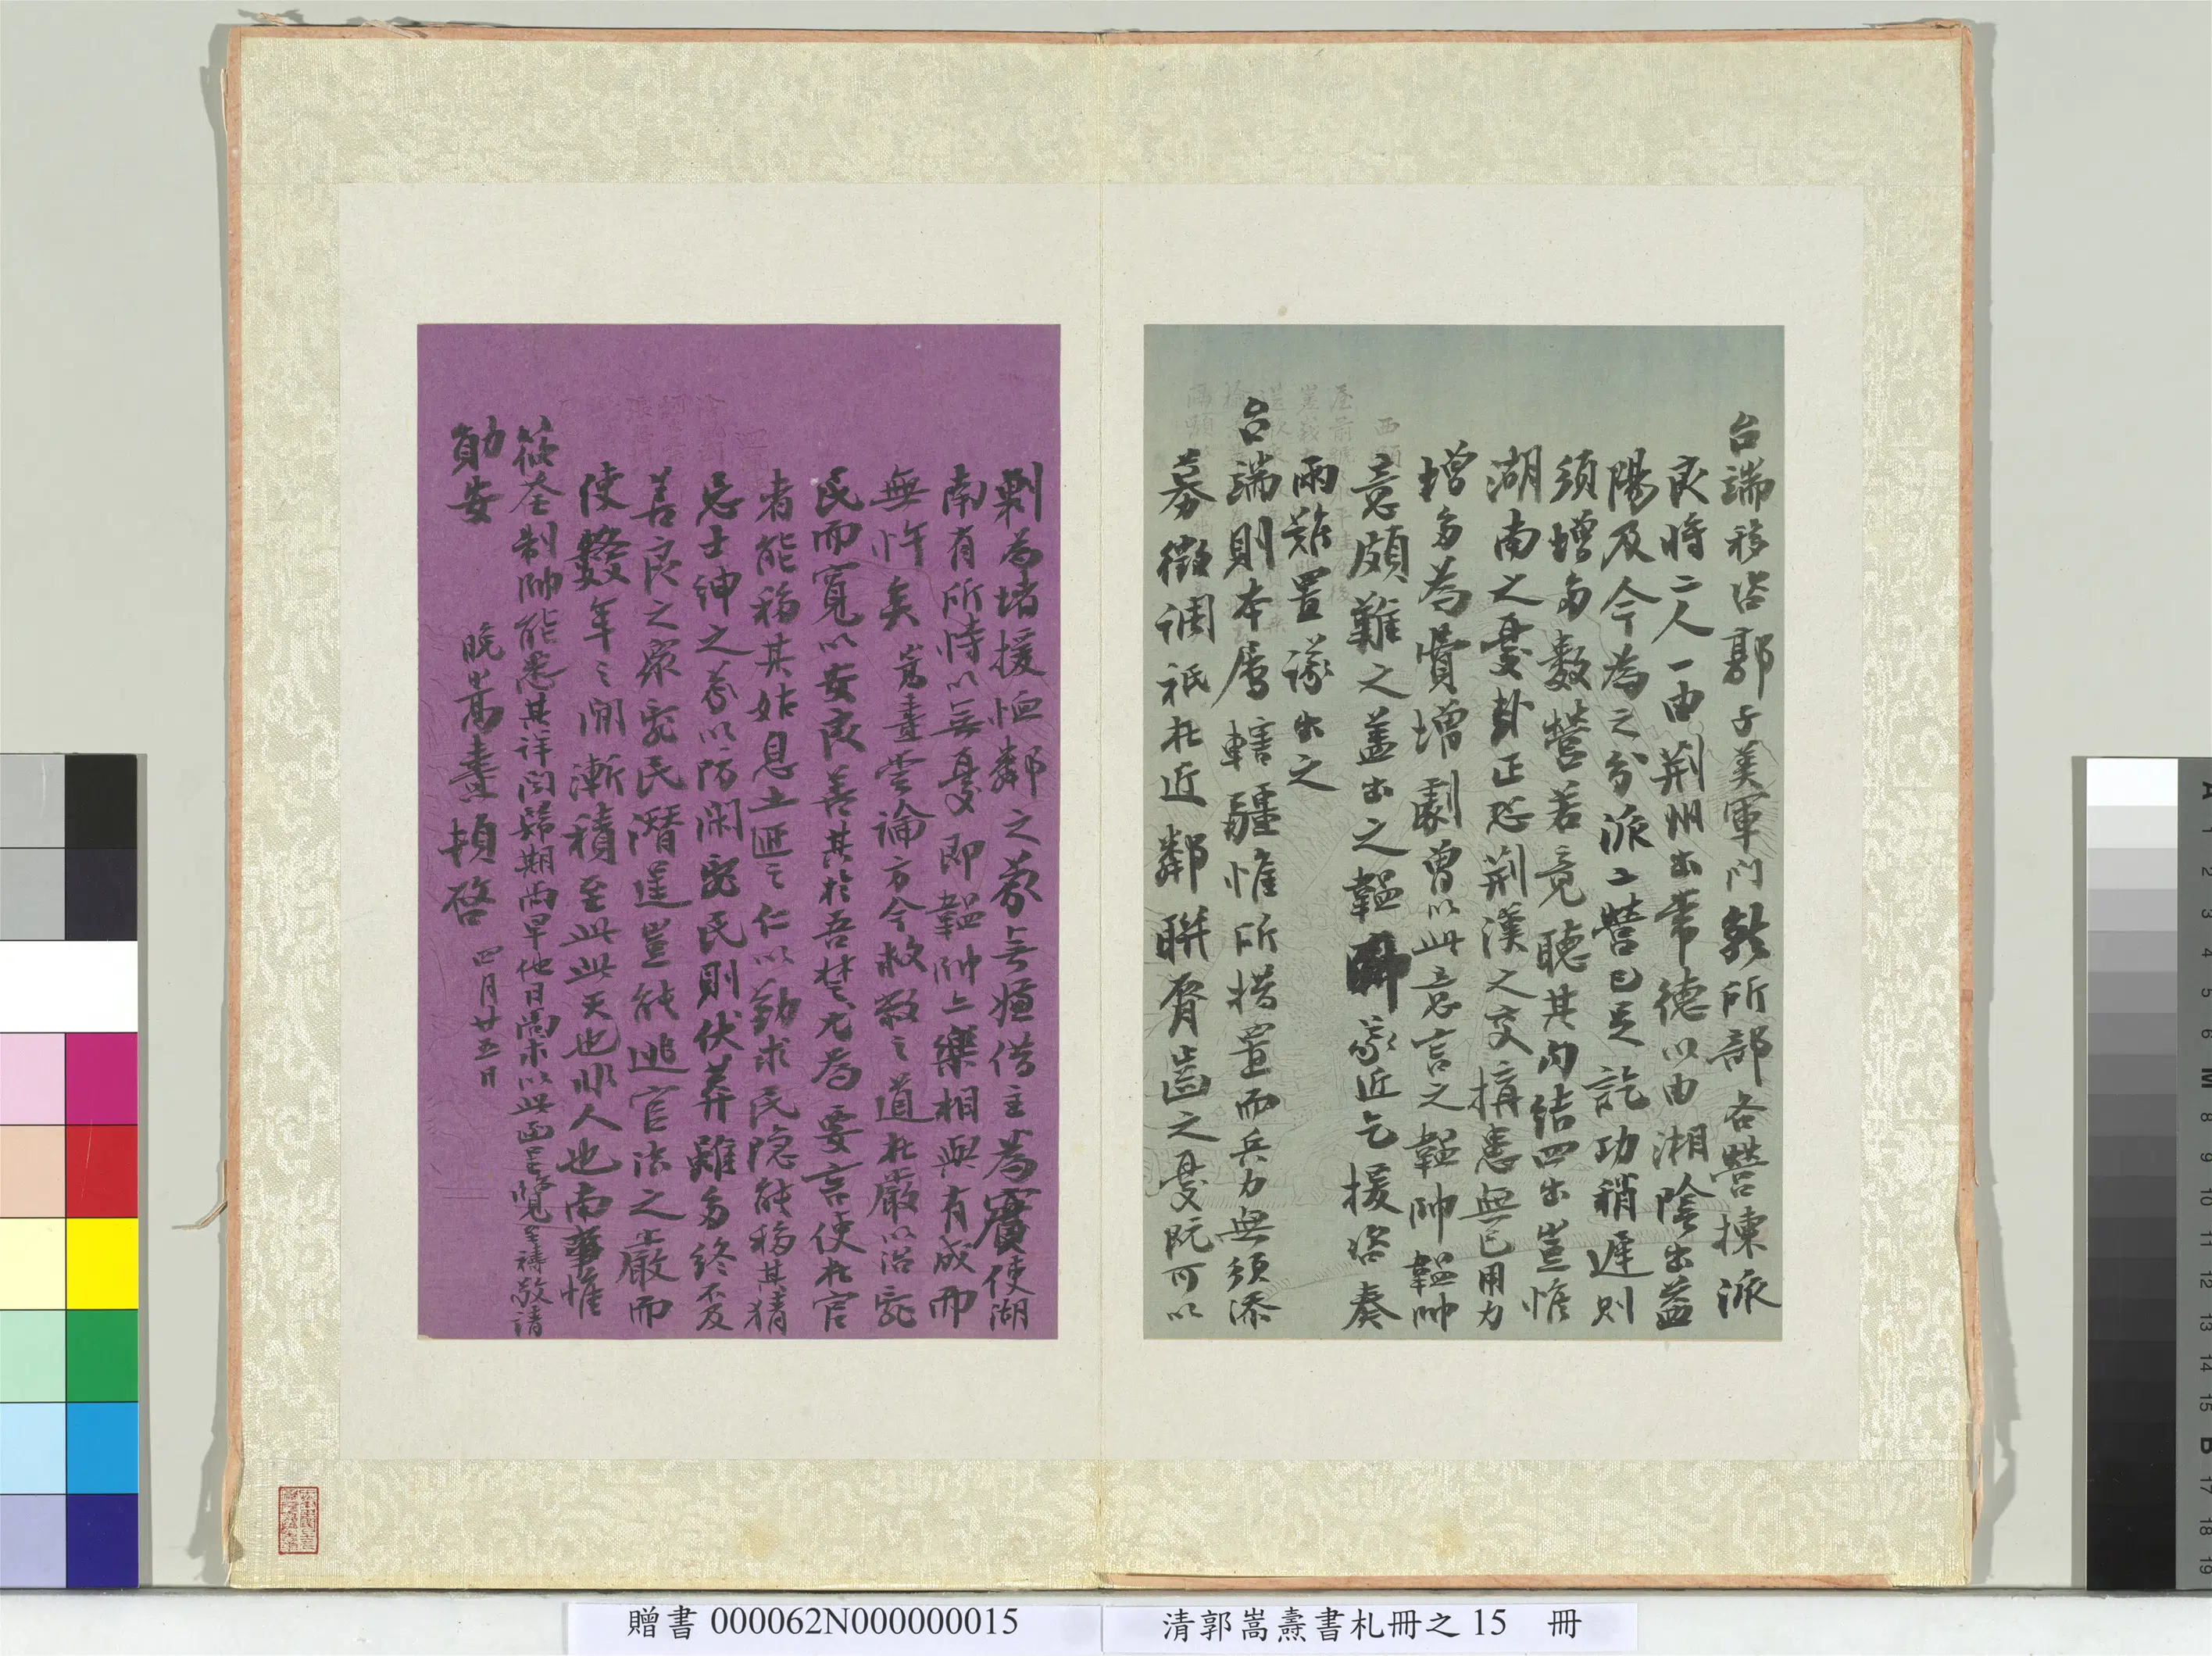 台端移咨郭子美軍門於所部各營揀派
良將二人一由荊州出常德以由湘陰出益
陽及今為之分派二營已足訖功稍遲則
須增多數營若竟聽其內結四出豈惟
湖南之憂卦正恐荊漢之交搆患無已用力
增多為費增劇曾以此意言之韞帥韞帥
意頗難之蓋出之韞帥家近乞援咨奏
兩難置議出之
台端則本屬轄疆惟所措置而兵力無須添
募徵調祇在近鄰聯脣齒之憂既可以
剿為堵援恤鄰之義無嫌借主為賓使湖
南有所恃以無憂即韞帥亦樂相與有成而
無忤矣嵩燾嘗論方今救敝之道在嚴以治亂
民而寬以安良善其於吾楚尤為要言使在官
者能移其姑息土匪之仁以勤求民隱能移其猜
忌士紳之義以防閑亂民則伏莽雖多終不及
善良之眾亂民潛逞豈能逃官法之嚴而
使數年之間漸積至此此天也非人也南事惟
筱荃制帥能悉其詳問歸期尚早他日尚求以此函呈覽至禱敬請
勛安
晚嵩燾頓啓 四月廿五日
贈書 000062N000000015
清郭嵩燾書札冊之 15 冊